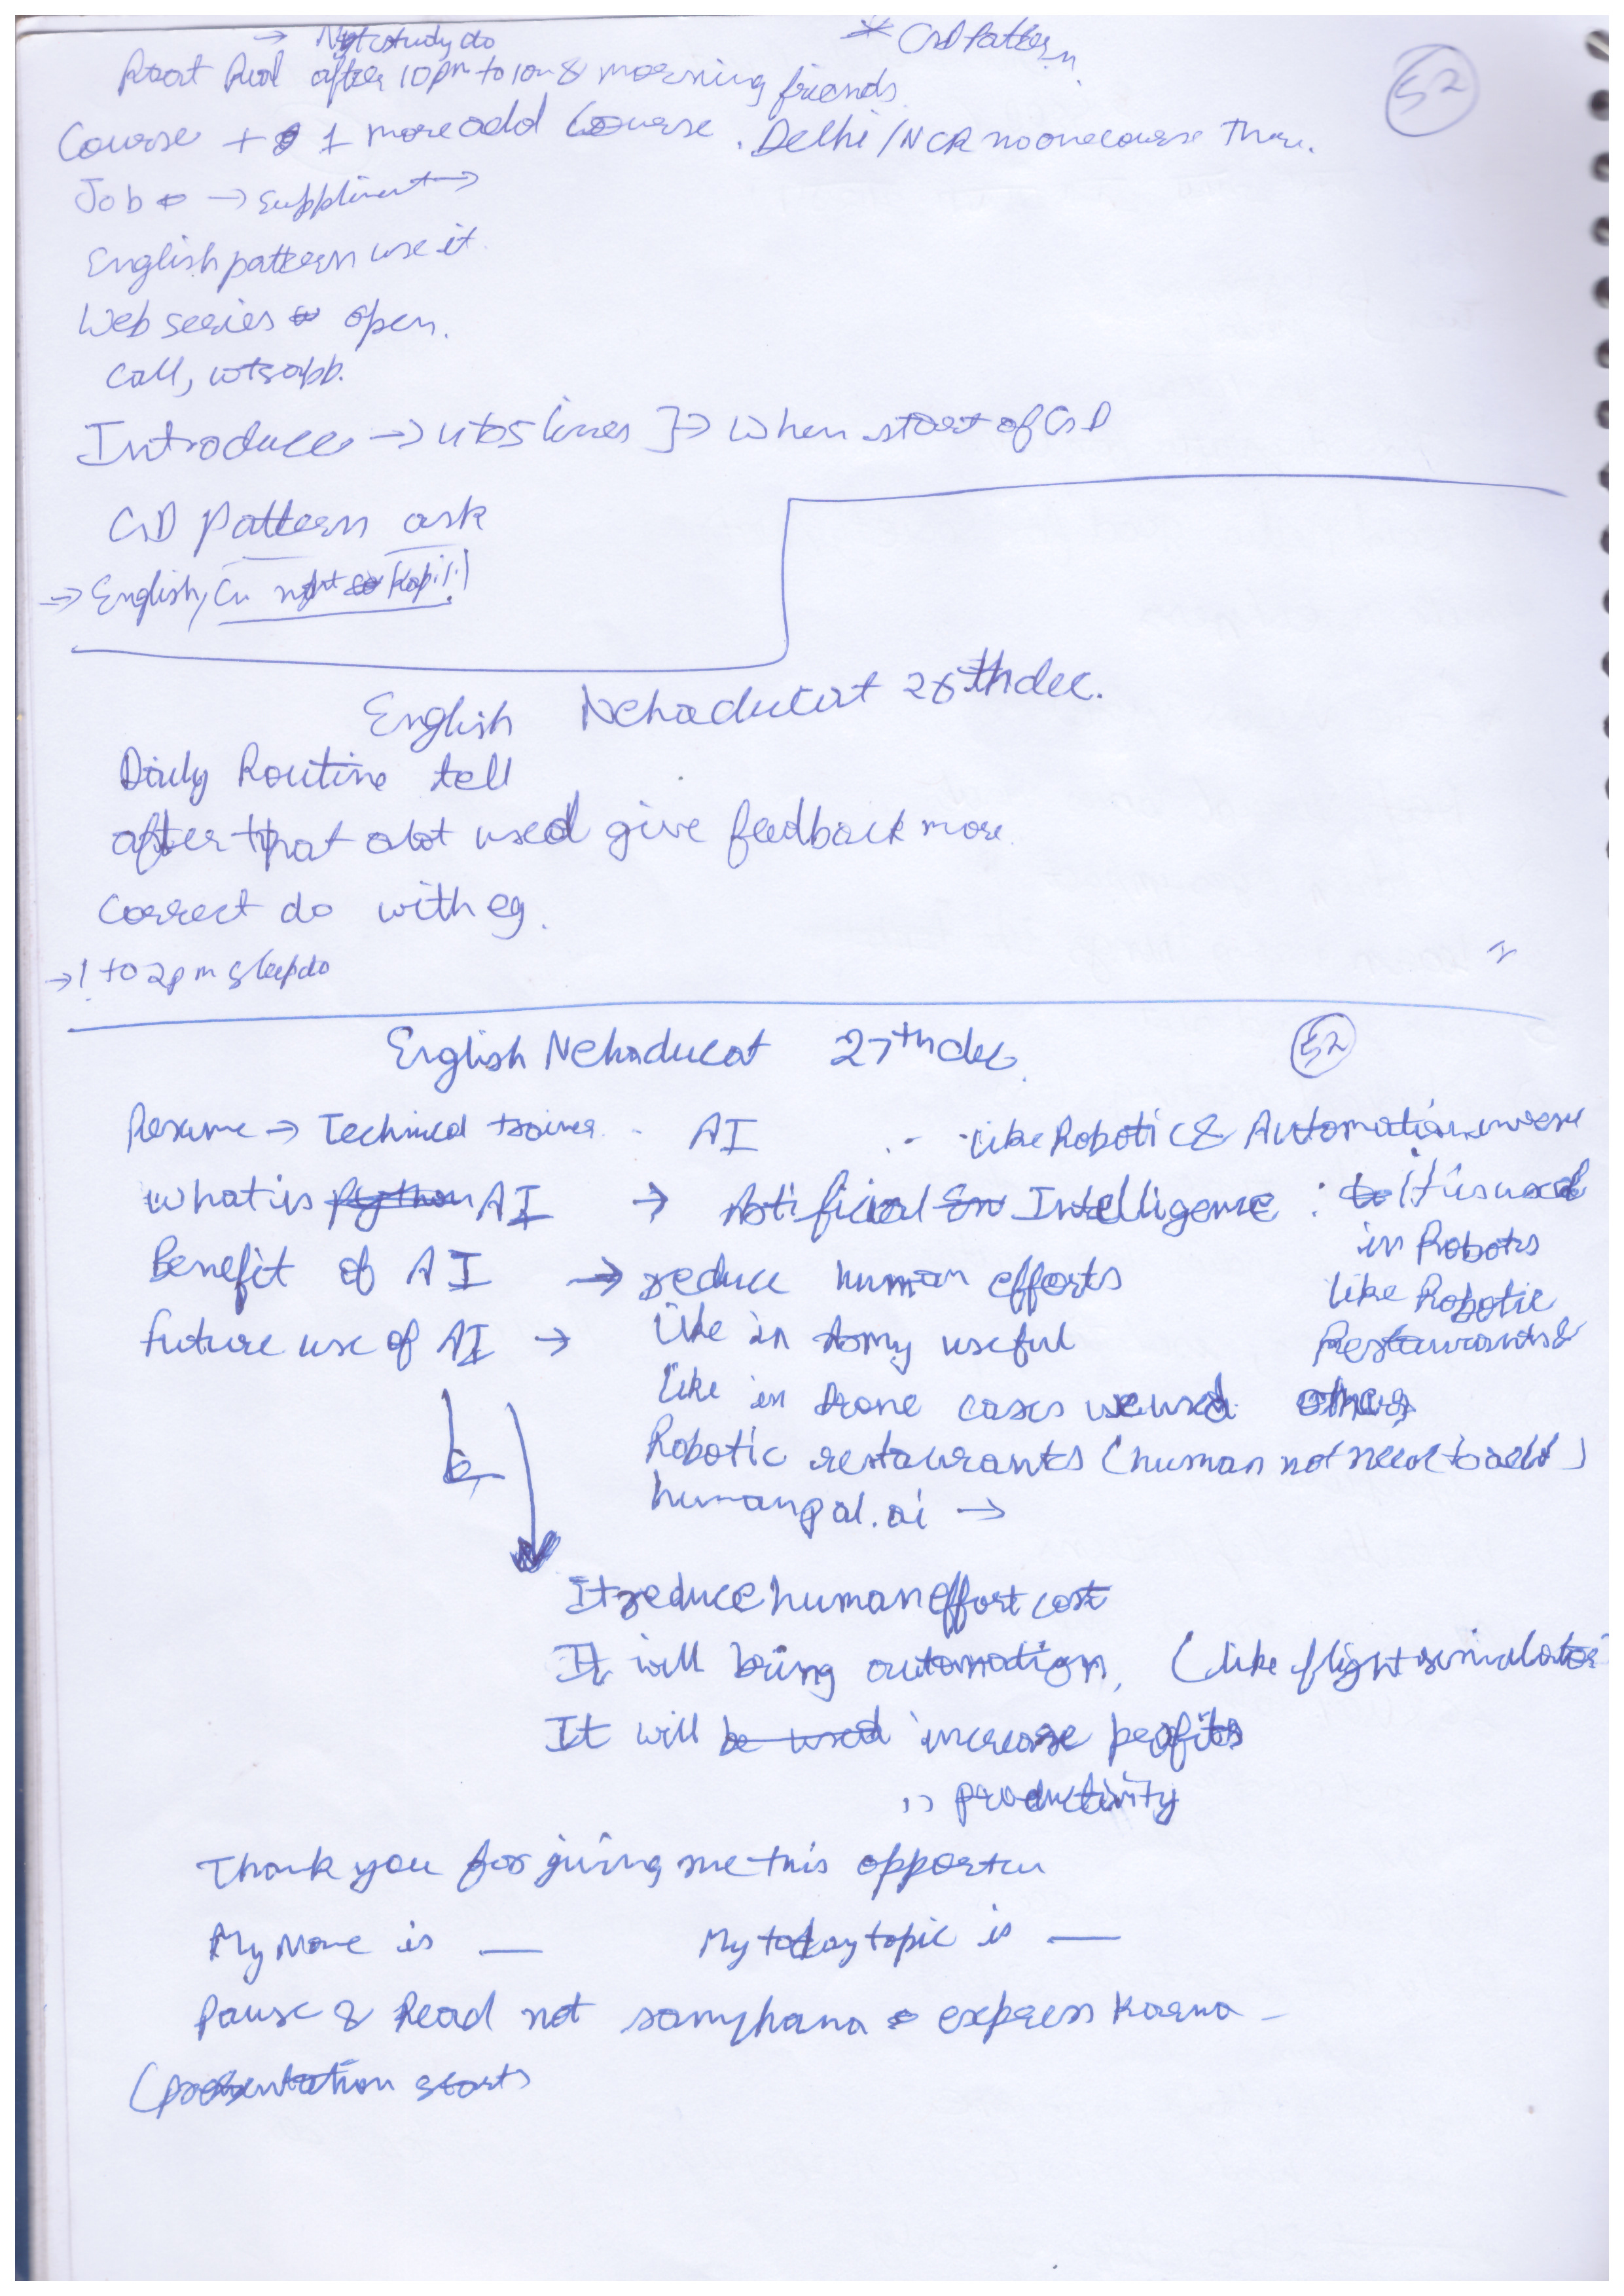 → Not study do
* GD Pattern
52
after 10 pm to 10 & morning friends
Course + 1 more add Course. Delhi/NCR no one course There.
Job → suppliment →
English pattern use it.
Web series open.
Call, wtsapp.
Introduce → 4 to 5 lines } → When start of GD
GD Pattern ask
→ English, GD
English Nehaducat 26th dec.
Daily Routine tell
after that a lot used give feedback more
correct do with eg.
→ 1 to 2 pm sleep do
English Nehaducat 27th dec.
52
Resume → Technical trainer. AI like Robotic & Automation
what is python AI → Artificial En Intelligence : It is used
in Robots
Benefit of AI → reduce human efforts
like Robotic
future use of AI → like in Army useful
Restaurants &
like in drone cases we used others
Robotic restaurants (human not need to add)
humanpal.ai →
It reduce human effort cost
It will bring automation, (like flight simulator
It will be used increase profits
" productivity
Thank you for giving me this opportu
My Name is — My today topic is —
Pause & Read not samjhana express karna –
(presentation starts